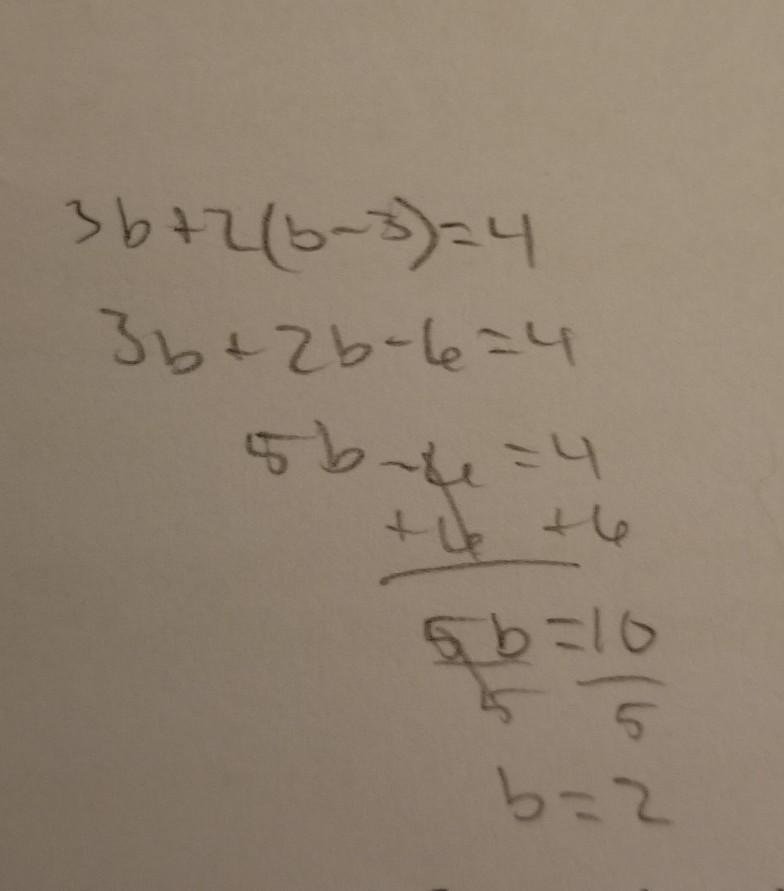 3b+2(b-3)=4
3b+2b-6=4
5b-6=4
+6 +6
5b=10
5 5
b=2